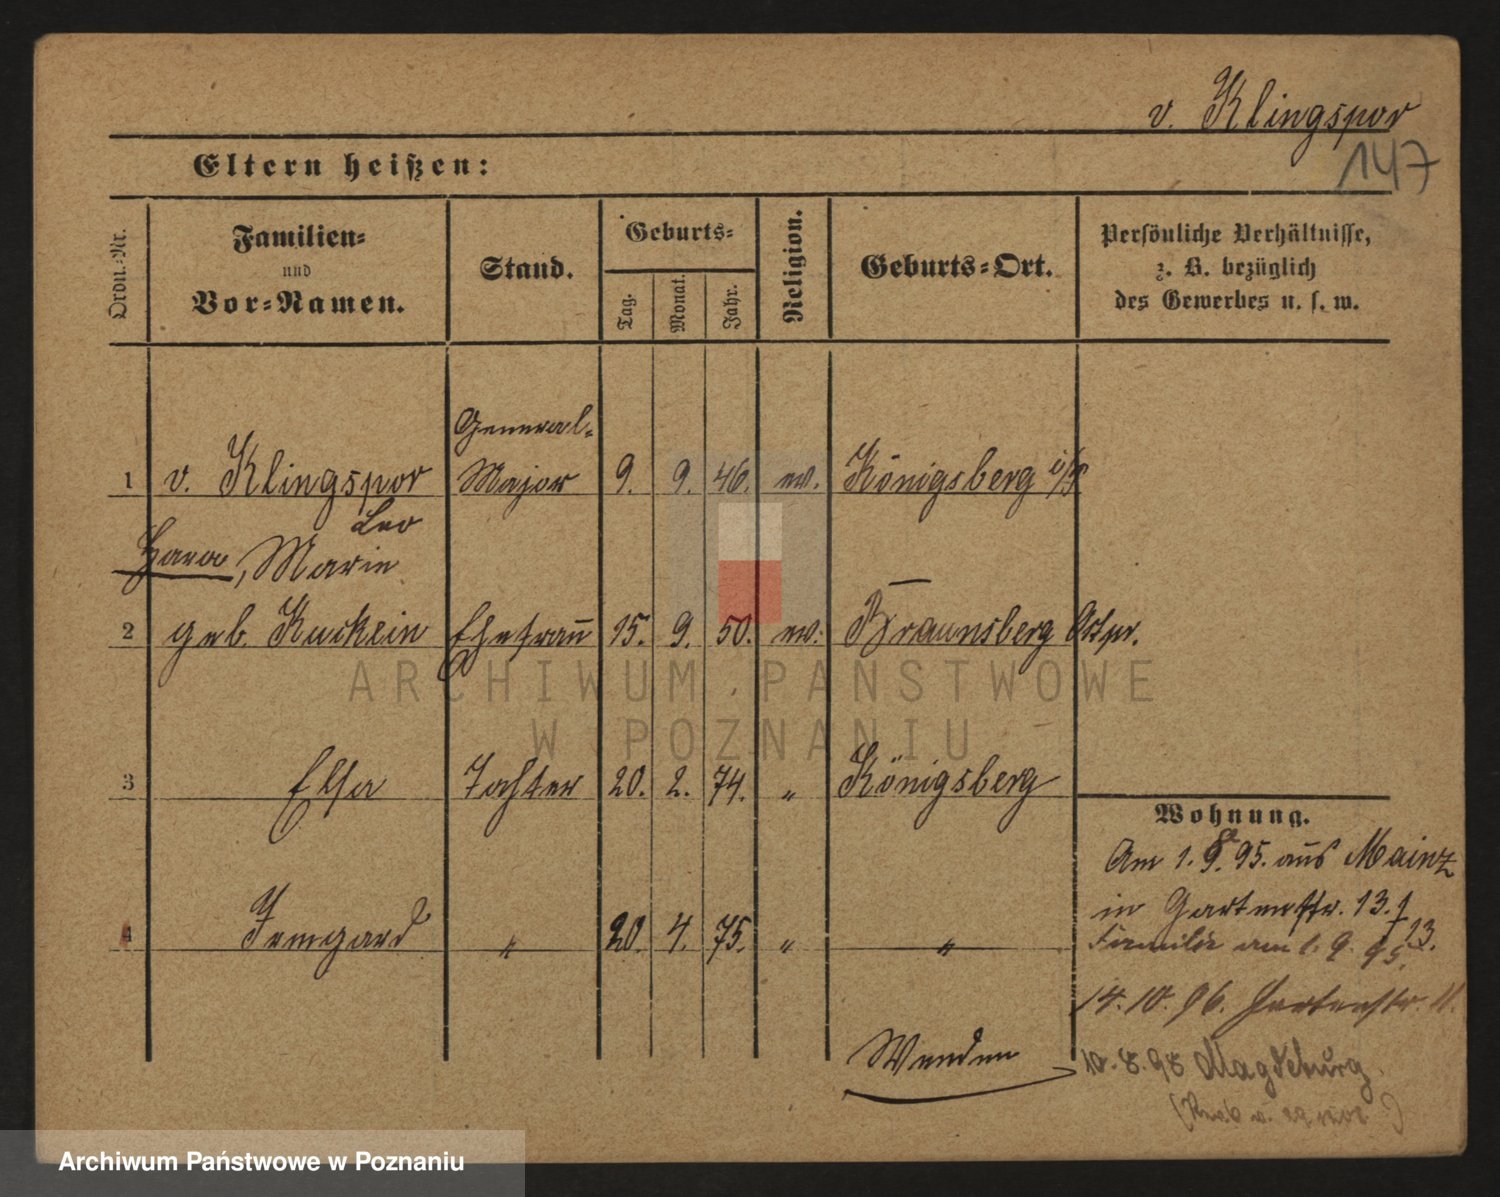 v. Klingspor
147
Eltern heißen:
Ordn.-Nr.
Familien-
und
Vor-Namen.
Stand.
Geburts-
Tag.
Monat.
Jahr.
Religion.
Geburts-Ort.
Persönliche Verhältnisse,
z. B. bezüglich
des Gewerbes u. s. w.
General-
1 v. Klingspor Major 9. 9. 46. ev. Königsberg i/P
Leo
Marie
2 geb. Kuckein Ehefrau 15. 9. 50. ev. Braunsberg Ostpr.
3 Elsa Tochter 20. 2. 74. " Königsberg
4 Irmgard " 20. 4. 75. " "
Wenden
Wohnung.
Am 1. 9. 95. aus Mainz
in Gartenstr. 13. I
Familie am 1. 9. 95.
14. 10. 96. Gartenstr. 11.
10. 8. 98 Magdeburg.
ARCHIWUM PAŃSTWOWE
W POZNANIU
Archiwum Państwowe w Poznaniu